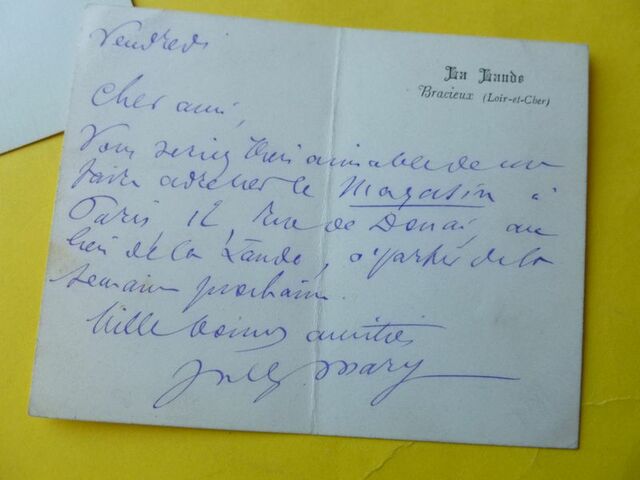 La Lande
Bracieux (Loir-et-Cher)
Vendredi
Cher ami,
Vous seriez bien aimable de me
faire adresser le Magasin à
Paris, 12, rue de Douai, au
lieu de la Lande, à partir de la
semaine prochaine.
Mille bonnes amitiés
Jules Mary